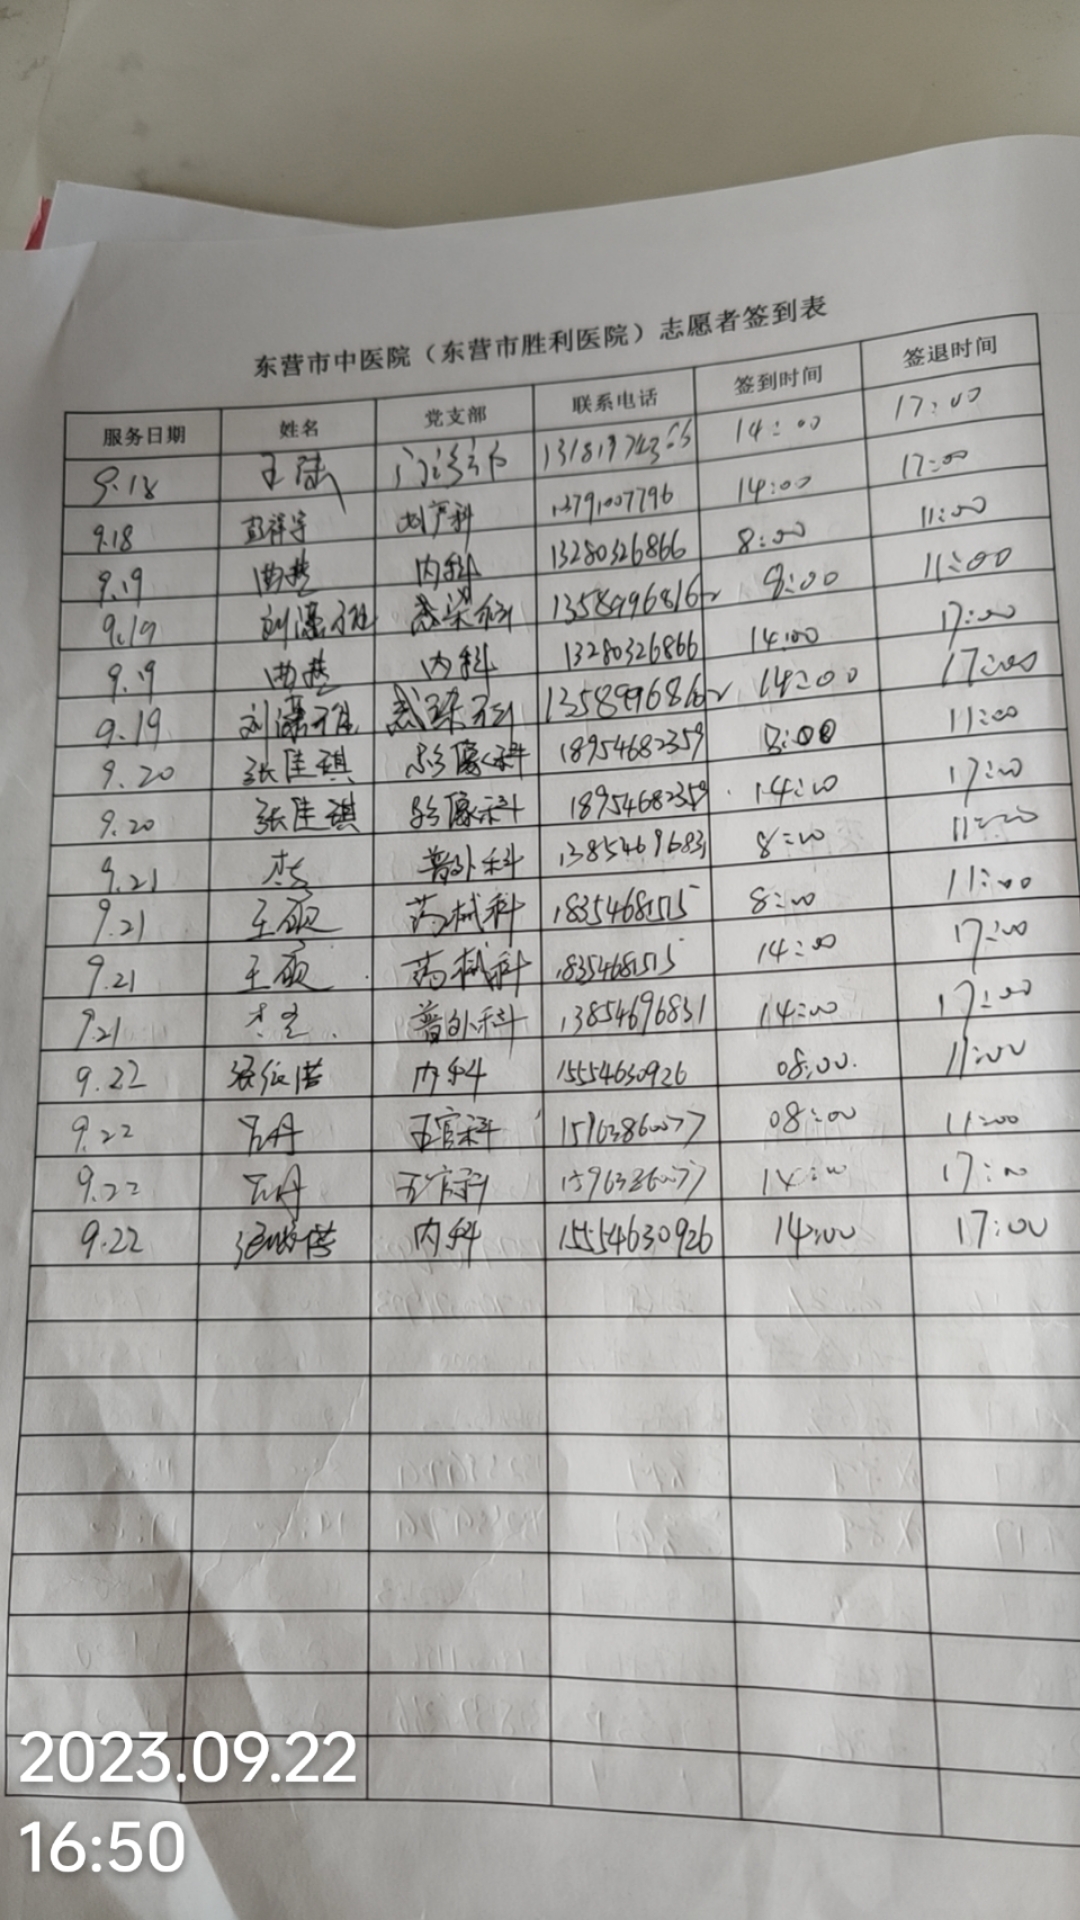 东营市中医院（东营市胜利医院）志愿者签到表
服务日期 姓名 党支部 联系电话 签到时间 签退时间
9.18 王 门诊 14:00 17:00
9.18 彭祥宇 妇产科 13791007796 14:00 17:00
9.19 内科 13280326866 8:00 11:00
9.19 刘 感染科 13589968162 8:00 11:00
9.19 内科 13280326866 14:00 17:00
9.19 刘 感染科 13589968162 14:00 17:00
9.20 张佳琪 影像科 18954682359 8:00 11:00
9.20 张佳琪 影像科 18954682359 14:00 17:00
9.21 普外科 13854696831 8:00 11:00
9.21 王硕 药械科 18354681515 8:00 11:00
9.21 王硕 药械科 18354681515 14:00 17:00
9.21 普外科 13854696831 14:00 17:00
9.22 张 内科 15554630926 08:00. 11:00
9.22 五官科 08:00 11:00
9.22 五官科 14:00 17:00
9.22 张 内科 15554630926 14:00 17:00
2023.09.22
16:50